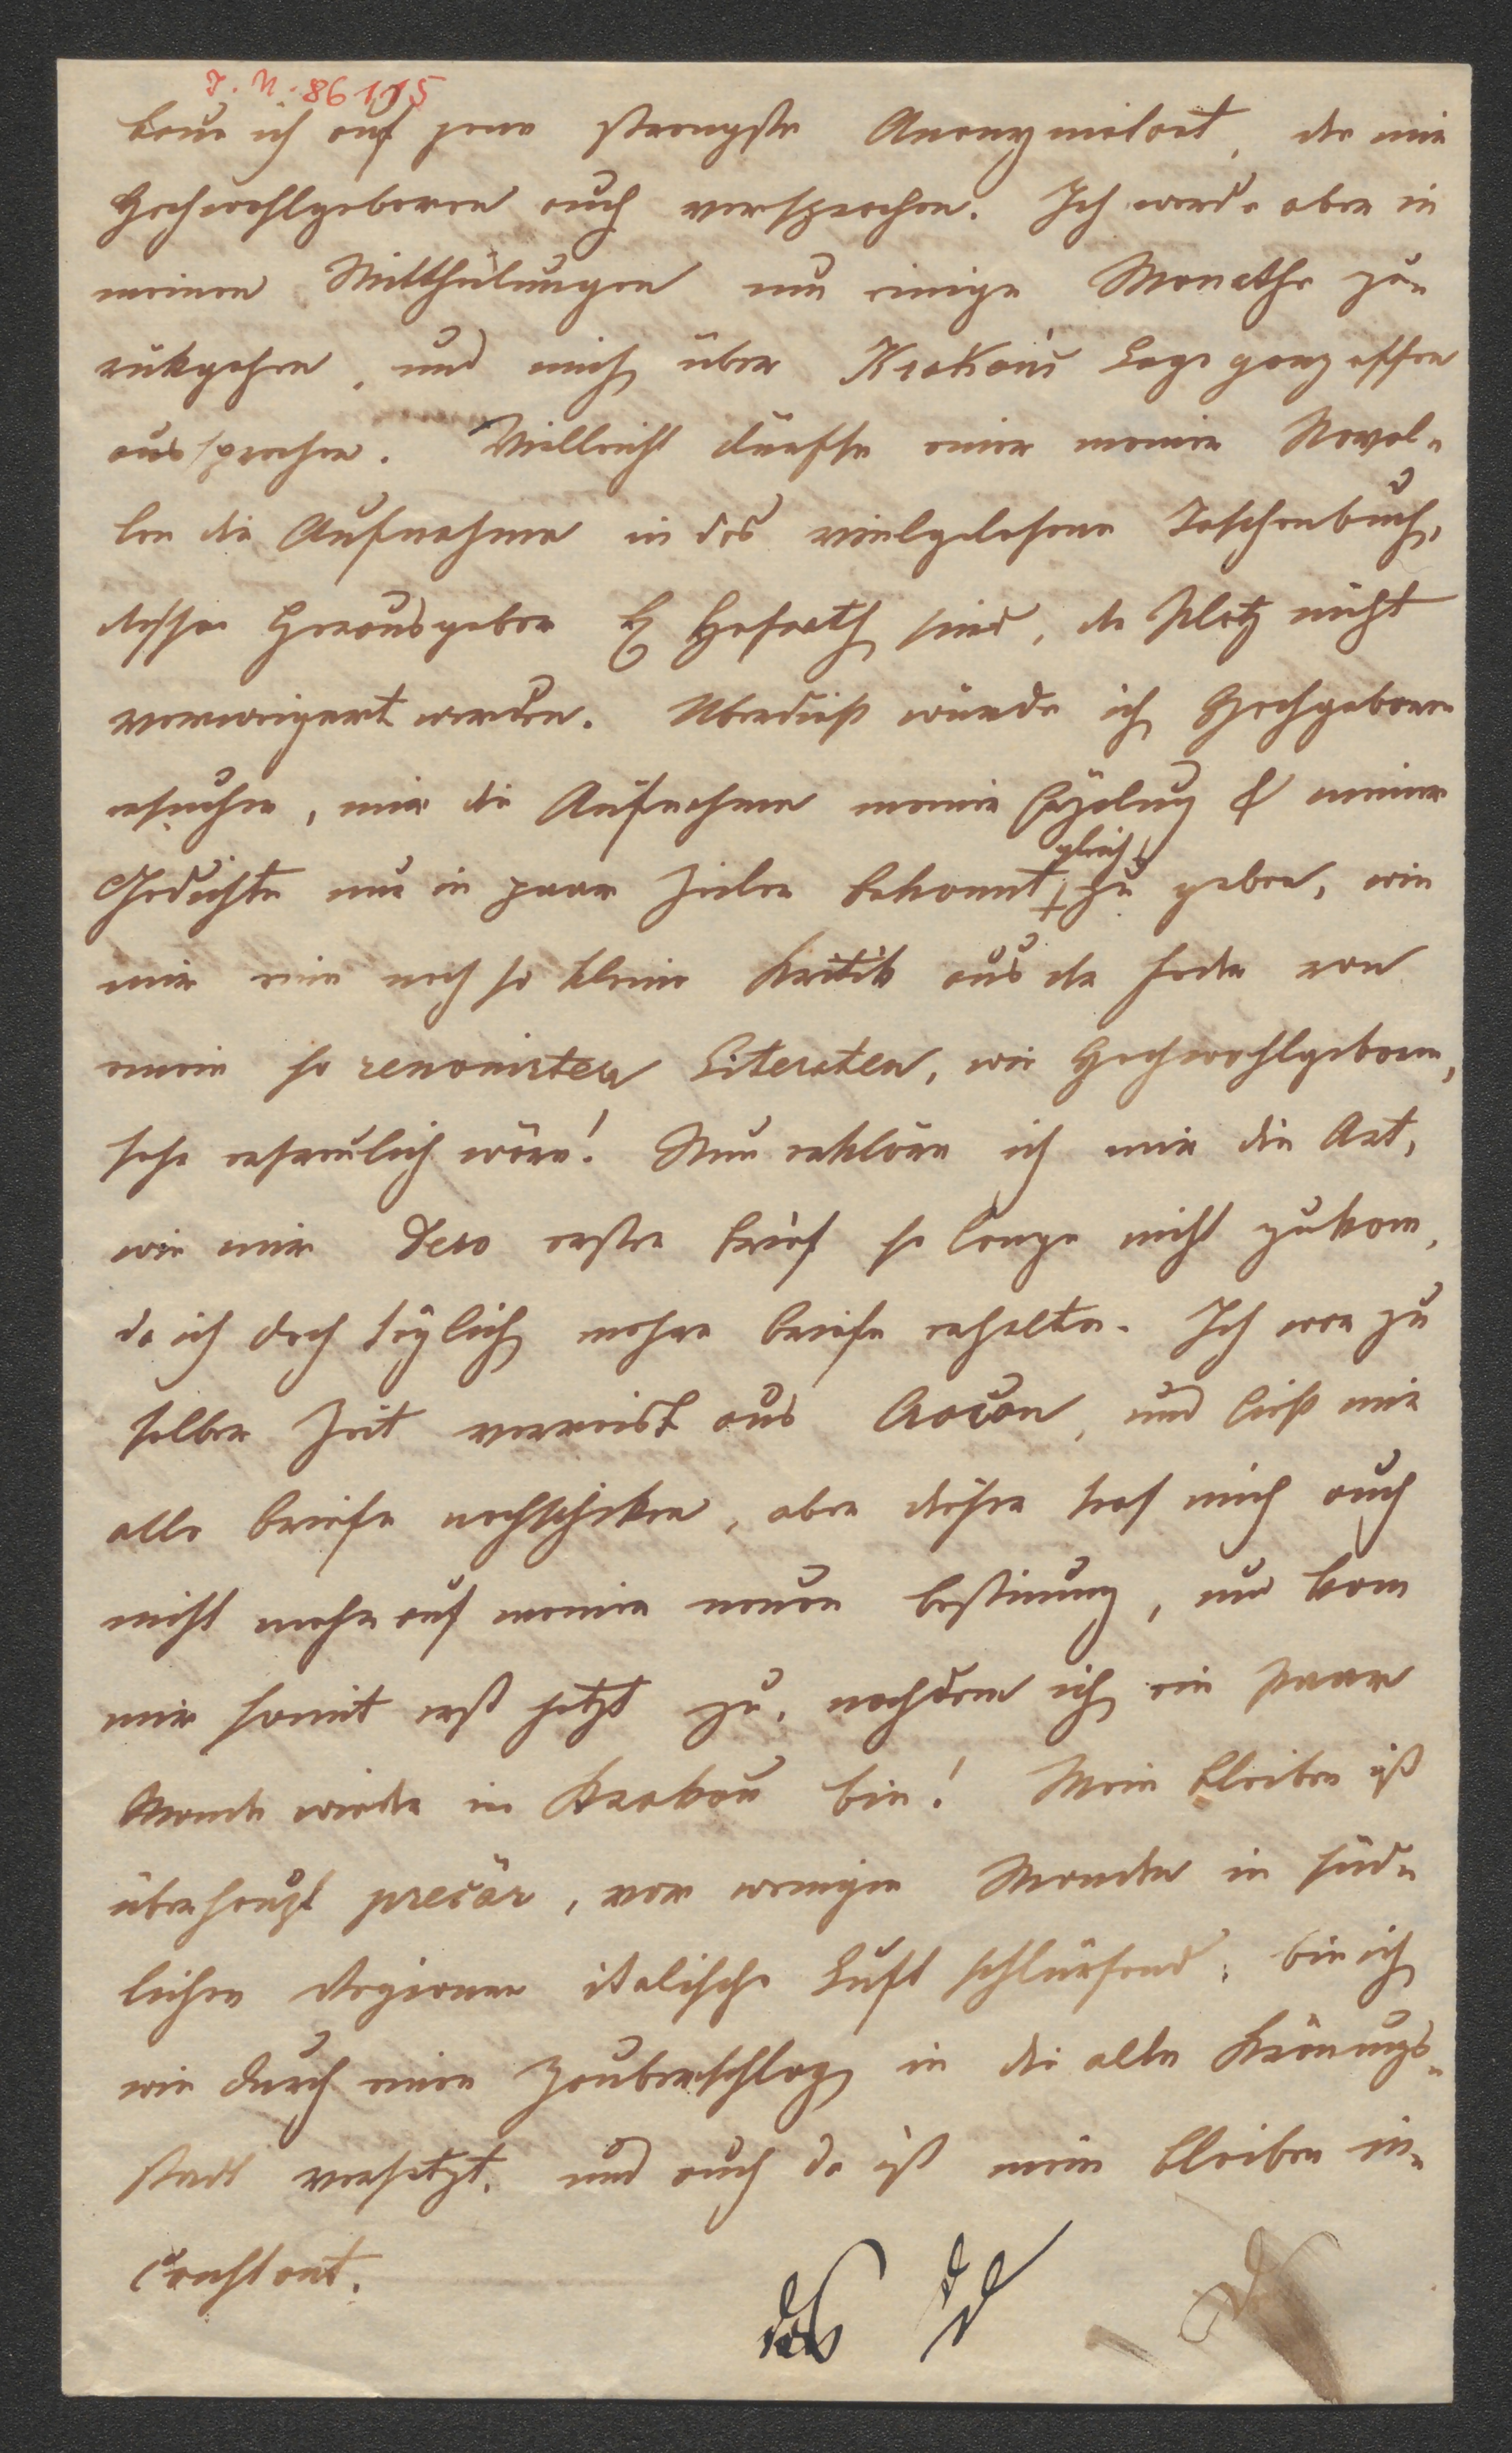 I. N. 86115
baue ich auf jene strengste Anonymitaet, die mir
Hochwohlgeboren auch versprachen. Ich werde aber in
meinen Mittheilungen um einige Monathe zu-
rükgehen, und mich über Krakau's Lage ganz offen
aussprechen. Vielleicht dürfte einer meiner Novel-
len die Aufnahme in das vielgelesene Taschenbuch,
dessen Herausgeber E Hofrath sind, der Platz nicht
verweigert werden. Uberdieß würde ich Hochgeboren
ersuchen, mir die Aufnahme meiner Erzälung & meiner
Gedichte nur in paar Zeilen bekannt gleich zu geben, wie
mir eine noch so kleine Kritik aus der Feder von
einem so renomirten Literaten, wie Hochwohlgeboren,
sehr erfreulich wäre! Nun erkläre ich mir die Art,
wie mir Dero erster Brief so lange nicht zukam,
da ich doch täglich mehre Briefe erhalte. Ich war zu
selber Zeit verreist aus Cracau, und ließ mir
alle Briefe nachschiken, aber dieser traf mich auch
nicht mehr auf meiner neuen Bestimung, und kam
mir somit erst jetzt zu, nachdem ich ein paar
Monate wieder in Krakau bin! Mein Bleiben ist
überhaupt precär, vor wenigen Monaten in süd-
lichen Regionen italische Luft schlürfend, bin ich
wie durch einen Zauberschlag in die alte Krönungs-
stadt versetzt, und auch da ist mein Bleiben in-
constant.